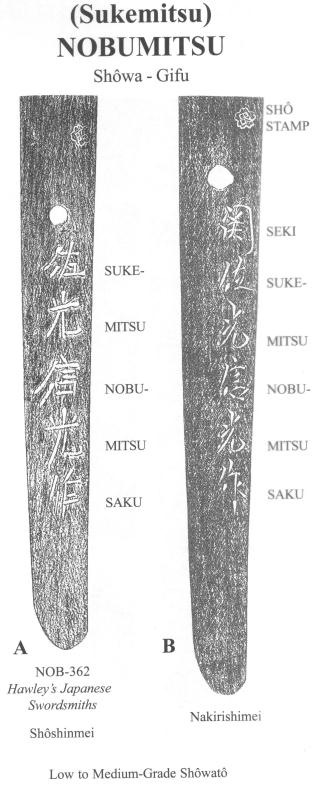 (Sukemitsu)
NOBUMITSU
Shôwa - Gifu
SHÔ
STAMP
佐
光
信
光
作
SUKE-
MITSU
NOBU-
MITSU
SAKU
関
佐
光
信
光
作
SEKI
SUKE-
MITSU
NOBU-
MITSU
SAKU
A
B
NOB-362
Hawley's Japanese
Swordsmiths
Shôshinmei
Nakirishimei
Low to Medium-Grade Shôwatô